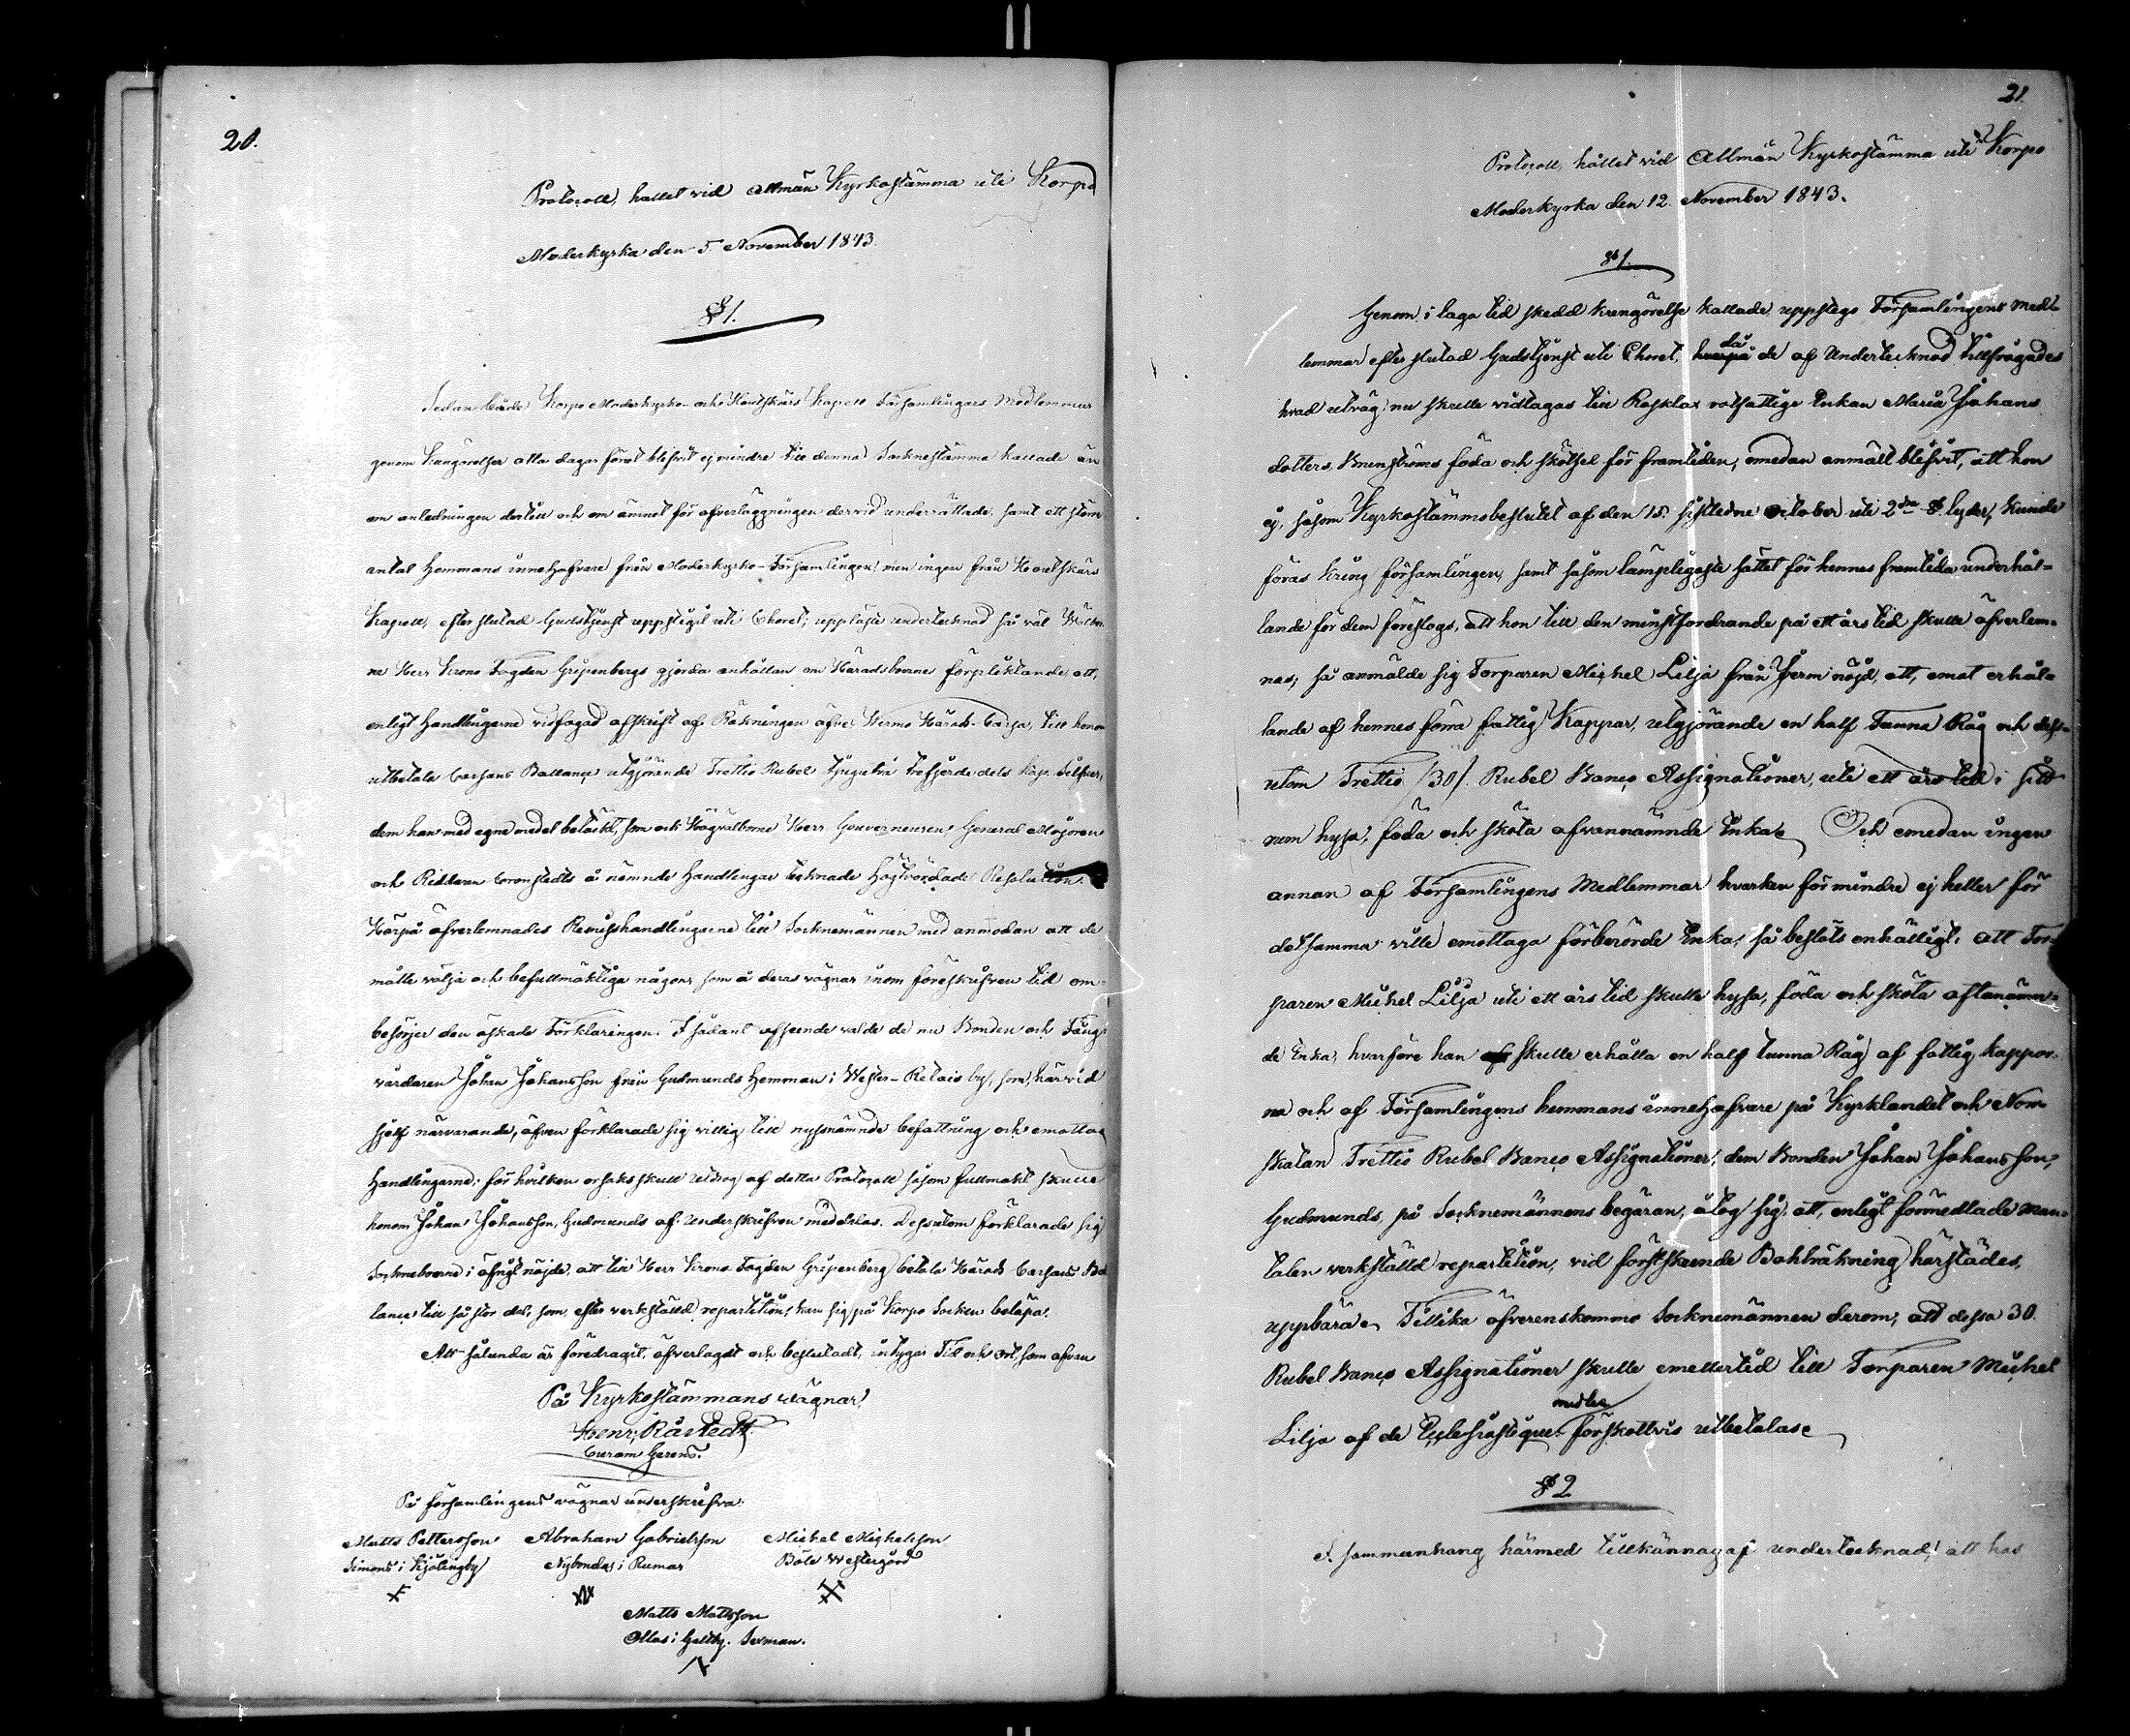 20.
Protocoll, hållet vid allmän Kyrkostämma uti Korpo
Moderkyrka den 5 November 1843.
§ 1.
Sedan både Korpo Moderkyrko och Houtskärs Kapell Församlingars Medlemmar
genom Kungörelser åtta dagar förut blifvit ej mindre till denna Socknestämma kallade än
om anledningen dertill och om ämnet för öfverläggningen dervid underrättade, samt ett stort
antal Hemmans innehafvare från Moderkyrko-Församlingen, men ingen från Houtskärs
Kapell, efter slutad Gudstjenst uppstigit uti Choret; uppläste undertecknad så väl
Herr Krono Fogden Gripenbergs gjorda anhållan om Häradsboernes förpliktande att,
enligt Handlingarne vidfogad afskrift af Räkningen öfver Härads-Cassa, till honom
utbetala Cassans Ballance utgjörande Trettio Rubel tjugutvå trefjerdedels Kop. Silfver,
dem han med egne medel betäckt, som ock Högvälborne Herr Gouverneuren, General Majoren
och Riddaren Cronstedts å nämnde Handlingar tecknade Högtvördade Resolution.
Härpå öfverlemnades Remisshandlingarne till Socknemännen med anmodan att de
måtte välja och befullmäktiga någon, som å deras vägnar inom föreskrifven tid om-
besörjer den äskade Förklaringen. I sådant afseende valde de nu Bonden och Fång-
vårdaren Johan Johansson från Gudmunds Hemman i Wester-Retais by, som, härvid
sjelf närvarande, äfven förklarade sig villig till nyssnämnde befattning och emottog
Handlingarne; för hvilken orsak skull utdrag af detta Protocoll såsom fullmakt skulle
honom Johan Johansson, Gudmunds af underskrifven meddelas. Dessutom förklarade sig
Sockneboerne i öfrigt nöjde, att till Herr Krono Fogden Gripenberg betala Härads Cassans Bal
lance till så stor del, som, efter verkställd repartition, kan sig på Korpo Socken belöpa.
Att sålunda är föredragit, öfverlagdt och beslutadt, intygar Tid och ort, som ofvan
På Kyrkostämmans vägnar
Henr. Råstedt.
Curam Gerens.
På församlingens vägnar underskrifva:
Matts Pettersson Abraham Gabrielsson Michel Michelsson
Simons i Kjälingby Nybondas i Rumar Böle Westergård
Matts Mattsson
Ollas i Galtby. Sexman.
21.
Protocoll, hållet vid Allmän Kyrkostämma uti Korpo
Moderkyrka den 12. November 1843.
§ 1.
Genom i laga tid skedd kungörelse kallade, uppstego Församlingens Med-
lemmar efter slutad Gudstjenst uti Choret, då de af Undertecknad tillfrågades
hvad utväg nu skulle vidtagas till Rosklax rotfattige Enkan Maria Johans
dotters Brenströms föda och skötsel för framtiden, emedan anmält blifvit, att hon
ej, såsom Kyrkostämmobeslutet af den 15. sistledne October uti 2dra § lyder, kunde
föras kring församlingen, samt såsom lämpligaste sättet för hennes framtida underhål-
lande för dem föreslogs, att hon till den minstfordrande på ett års tid skulle öfverlem-
nas; så anmälde sig Torparen Michel Lilja från Jerm nöjd, att, emot erhål-
lande af hennes förra fattig Kappar, utgjörande en half Tunna Råg och dess-
utom Trettio /30/. Rubel Banco Assignationer, uti ett års tid i sitt
rum hysa, föda och sköta ofvannämnde Enka. Och emedan ingen
annan af Församlingens Medlemmar hvarken för mindre ej heller för
detsamma ville emottaga förberörde Enka, så beslöts enhälligt, att Tor-
paren Michel Lilja uti ett års tid skulle hysa, föda och sköta oftanämn-
de Enka, hvarföre han skulle erhålla en half tunna Råg af fattig kappor-
na och af Församlingens hemmans innehafvare på Kyrklandet och Norr
skatan Trettio Rubel Banco Assignationer, dem Bonden Johan Johansson,
Gudmunds, på Socknemännens begäran, åtog sig, att, enligt förmedlade man-
talen verkställd repartition, vid förstskeende Bohlräkning härstädes,
uppbära. Tillika öfverenskommo Socknemännen derom, att dessa 30.
Rubel Banco Assignationer skulle emellertid till Torparen Michel
Lilja af de Ecclesiastique medlen förskottvis utbetalas.
§ 2
I sammanhang härmed tillkännagaf undertecknad, att hos